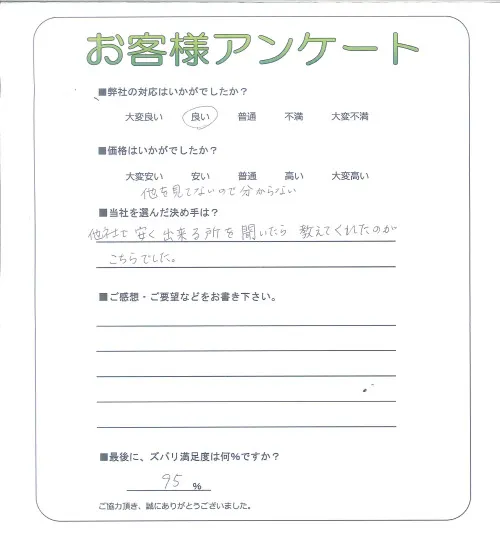 お客様アンケート
■弊社の対応はいかがでしたか？
大変良い 良い 普通 不満 大変不満
■価格はいかがでしたか？
大変安い 安い 普通 高い 大変高い
他を見てないので分からない
■当社を選んだ決め手は？
他社で安く出来る所を聞いたら教えてくれたのが
こちらでした。
■ご感想・ご要望などをお書き下さい。
■最後に、ズバリ満足度は何％ですか？
95 %
ご協力頂き、誠にありがとうございました。